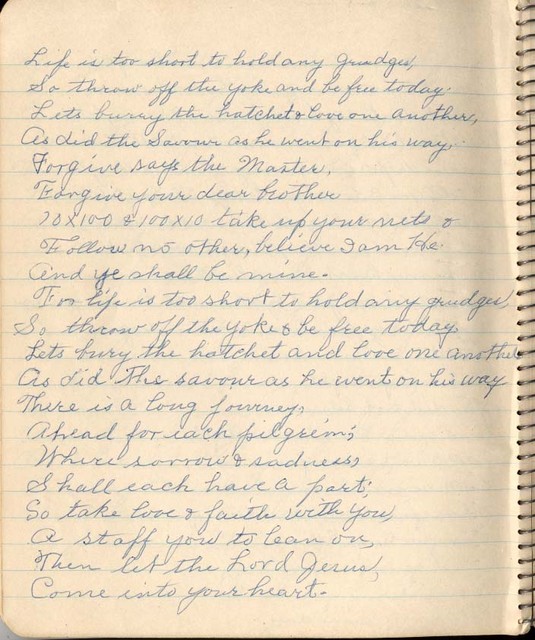 Life is too short to hold any grudges,
So throw off the yoke and be free today.
Lets burry the hatchet & love one another,
As did the Savour as he went on his way.
Forgive says the Master,
Forgive your dear brother
70X100 & 100X10 take up your nets &
Follow no other, believe I am He.
And ye shall be mine.
For life is too short to hold any grudges,
So throw off the yoke & be free today.
Lets bury the hatchet and love one another
As did the savour as he went on his way
There is a long journey,
Ahead for each pilgrim;
Where sorrow & sadness,
Shall each have a part;
So take love & faith with you,
A staff you to lean on,
Then let the Lord Jesus,
Come into your heart.